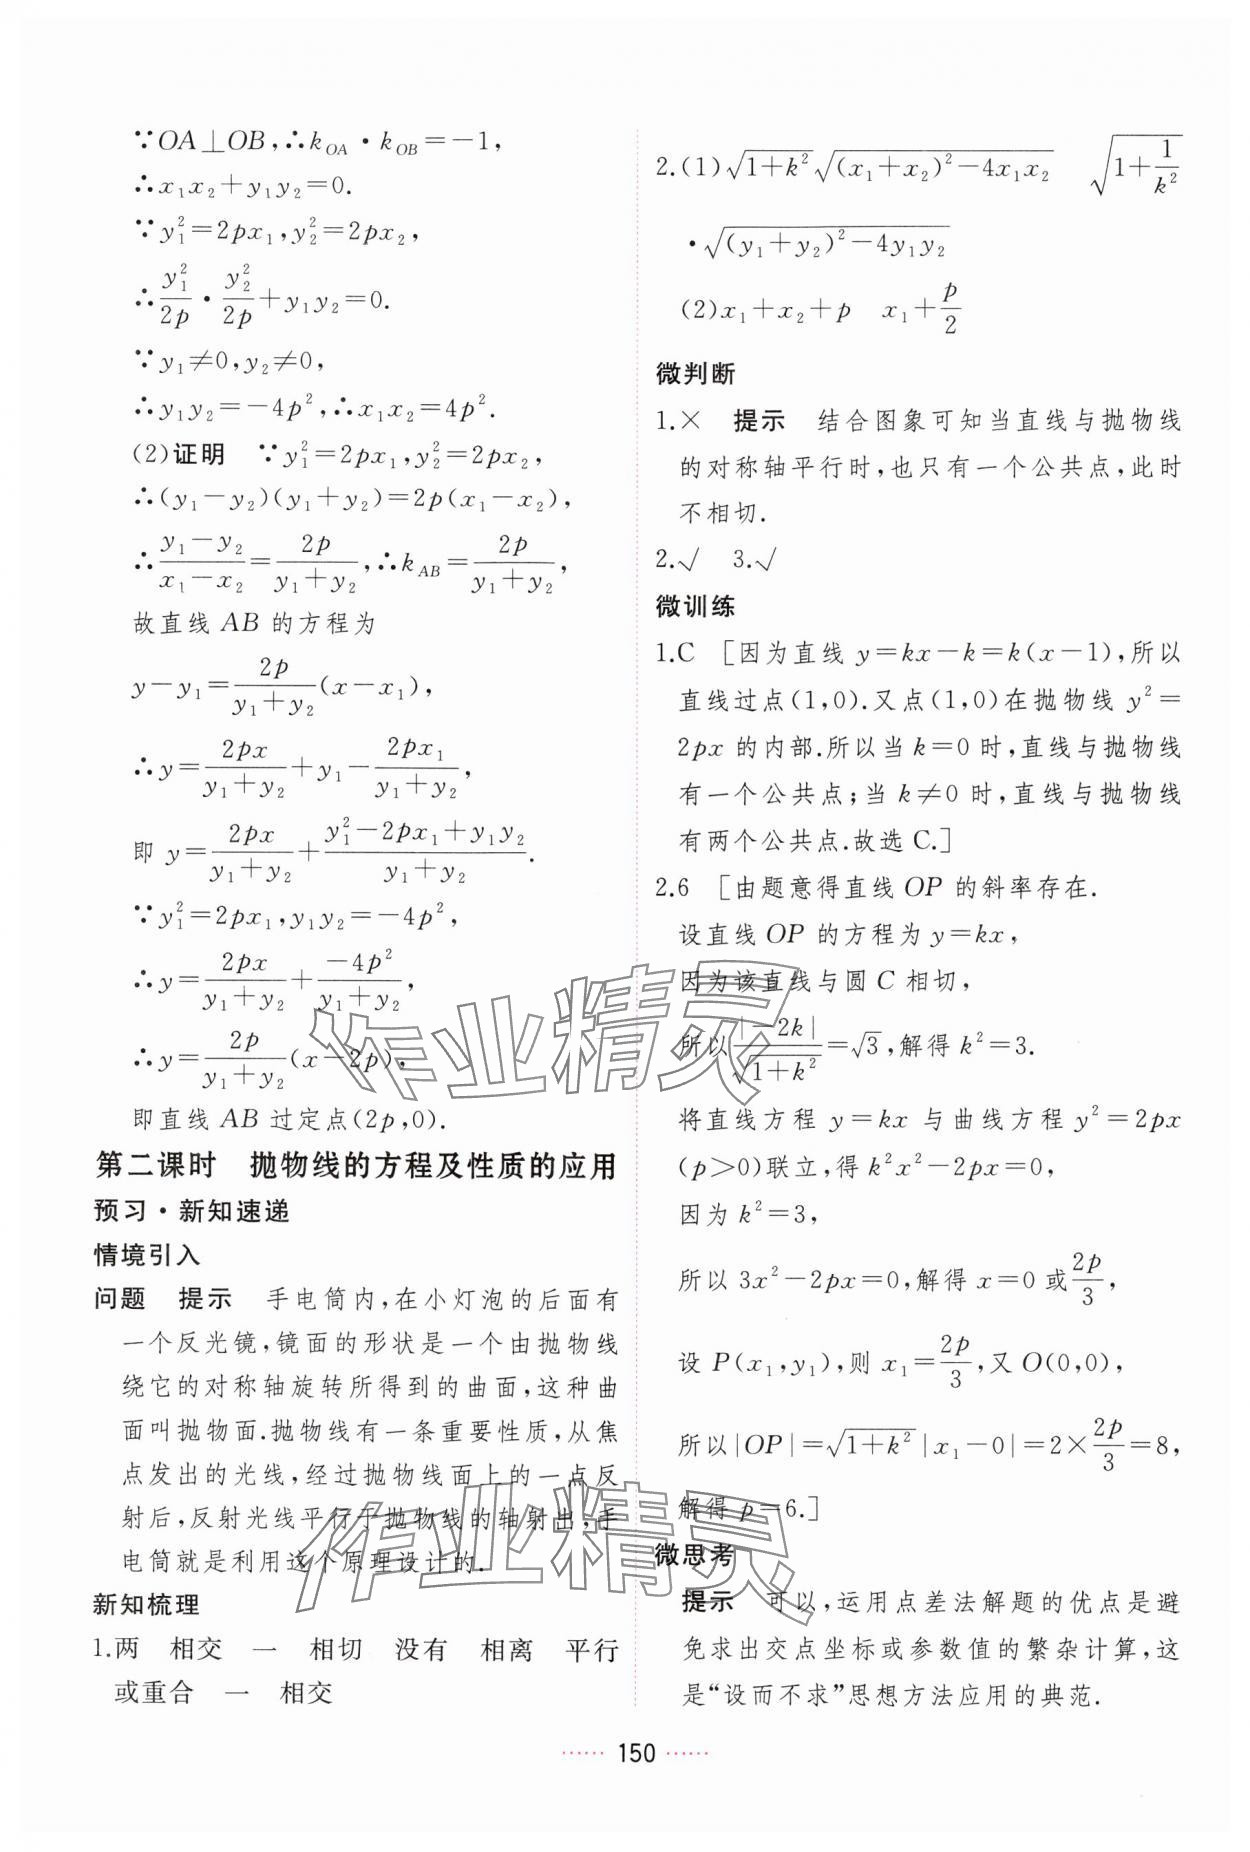 ∵OA⊥OB,∴k_{OA}·k_{OB}=−1,
∴x₁x₂+y₁y₂=0.
∵y₁²=2px₁,y₂²=2px₂,
∴\frac{y₁²}{2p}·\frac{y₂²}{2p}+y₁y₂=0.
∵y₁≠0,y₂≠0,
∴y₁y₂=−4p²,∴x₁x₂=4p².
(2)证明 ∵y₁²=2px₁,y₂²=2px₂,
∴(y₁−y₂)(y₁+y₂)=2p(x₁−x₂),
∴\frac{y₁−y₂}{x₁−x₂}=\frac{2p}{y₁+y₂},∴k_{AB}=\frac{2p}{y₁+y₂},
故直线 AB 的方程为
y−y₁=\frac{2p}{y₁+y₂}(x−x₁),
∴y=\frac{2px}{y₁+y₂}+y₁−\frac{2px₁}{y₁+y₂},
即 y=\frac{2px}{y₁+y₂}+\frac{y₁²−2px₁+y₁y₂}{y₁+y₂}.
∵y₁²=2px₁,y₁y₂=−4p²,
∴y=\frac{2px}{y₁+y₂}+\frac{−4p²}{y₁+y₂},
∴y=\frac{2p}{y₁+y₂}(x−2p),
即直线 AB 过定点(2p,0).
第二课时 抛物线的方程及性质的应用
预习·新知速递
情境引入
问题 提示 手电筒内,在小灯泡的后面有
一个反光镜,镜面的形状是一个由抛物线
绕它的对称轴旋转所得到的曲面,这种曲
面叫抛物面.抛物线有一条重要性质,从焦
点发出的光线,经过抛物线面上的一点反
射后,反射光线平行于抛物线的轴射出,手
电筒就是利用这个原理设计的.
新知梳理
1.两 相交 一 相切 没有 相离 平行
或重合 一 相交
2.(1)\sqrt{1+k²}\sqrt{(x₁+x₂)²−4x₁x₂} \sqrt{1+\frac{1}{k²}}
·\sqrt{(y₁+y₂)²−4y₁y₂}
(2)x₁+x₂+p x₁+\frac{p}{2}
微判断
1.× 提示 结合图象可知当直线与抛物线
的对称轴平行时,也只有一个公共点,此时
不相切.
2.√ 3.√
微训练
1.C [因为直线 y=kx−k=k(x−1),所以
直线过点(1,0).又点(1,0)在抛物线 y²=
2px 的内部.所以当 k=0 时,直线与抛物线
有一个公共点;当 k≠0 时,直线与抛物线
有两个公共点.故选 C.]
2.6 [由题意得直线 OP 的斜率存在.
设直线 OP 的方程为 y=kx,
因为该直线与圆 C 相切,
所以\frac{|−2k|}{\sqrt{1+k²}}=√3,解得 k²=3.
将直线方程 y=kx 与曲线方程 y²=2px
(p>0)联立,得 k²x²−2px=0,
因为 k²=3,
所以 3x²−2px=0,解得 x=0 或\frac{2p}{3},
设 P(x₁,y₁),则 x₁=\frac{2p}{3},又 O(0,0),
所以|OP|=\sqrt{1+k²}|x₁−0|=2×\frac{2p}{3}=8,
解得 p=6.]
微思考
提示 可以,运用点差法解题的优点是避
免求出交点坐标或参数值的繁杂计算,这
是“设而不求”思想方法应用的典范.
作业精灵
作业精灵
······ 150 ······